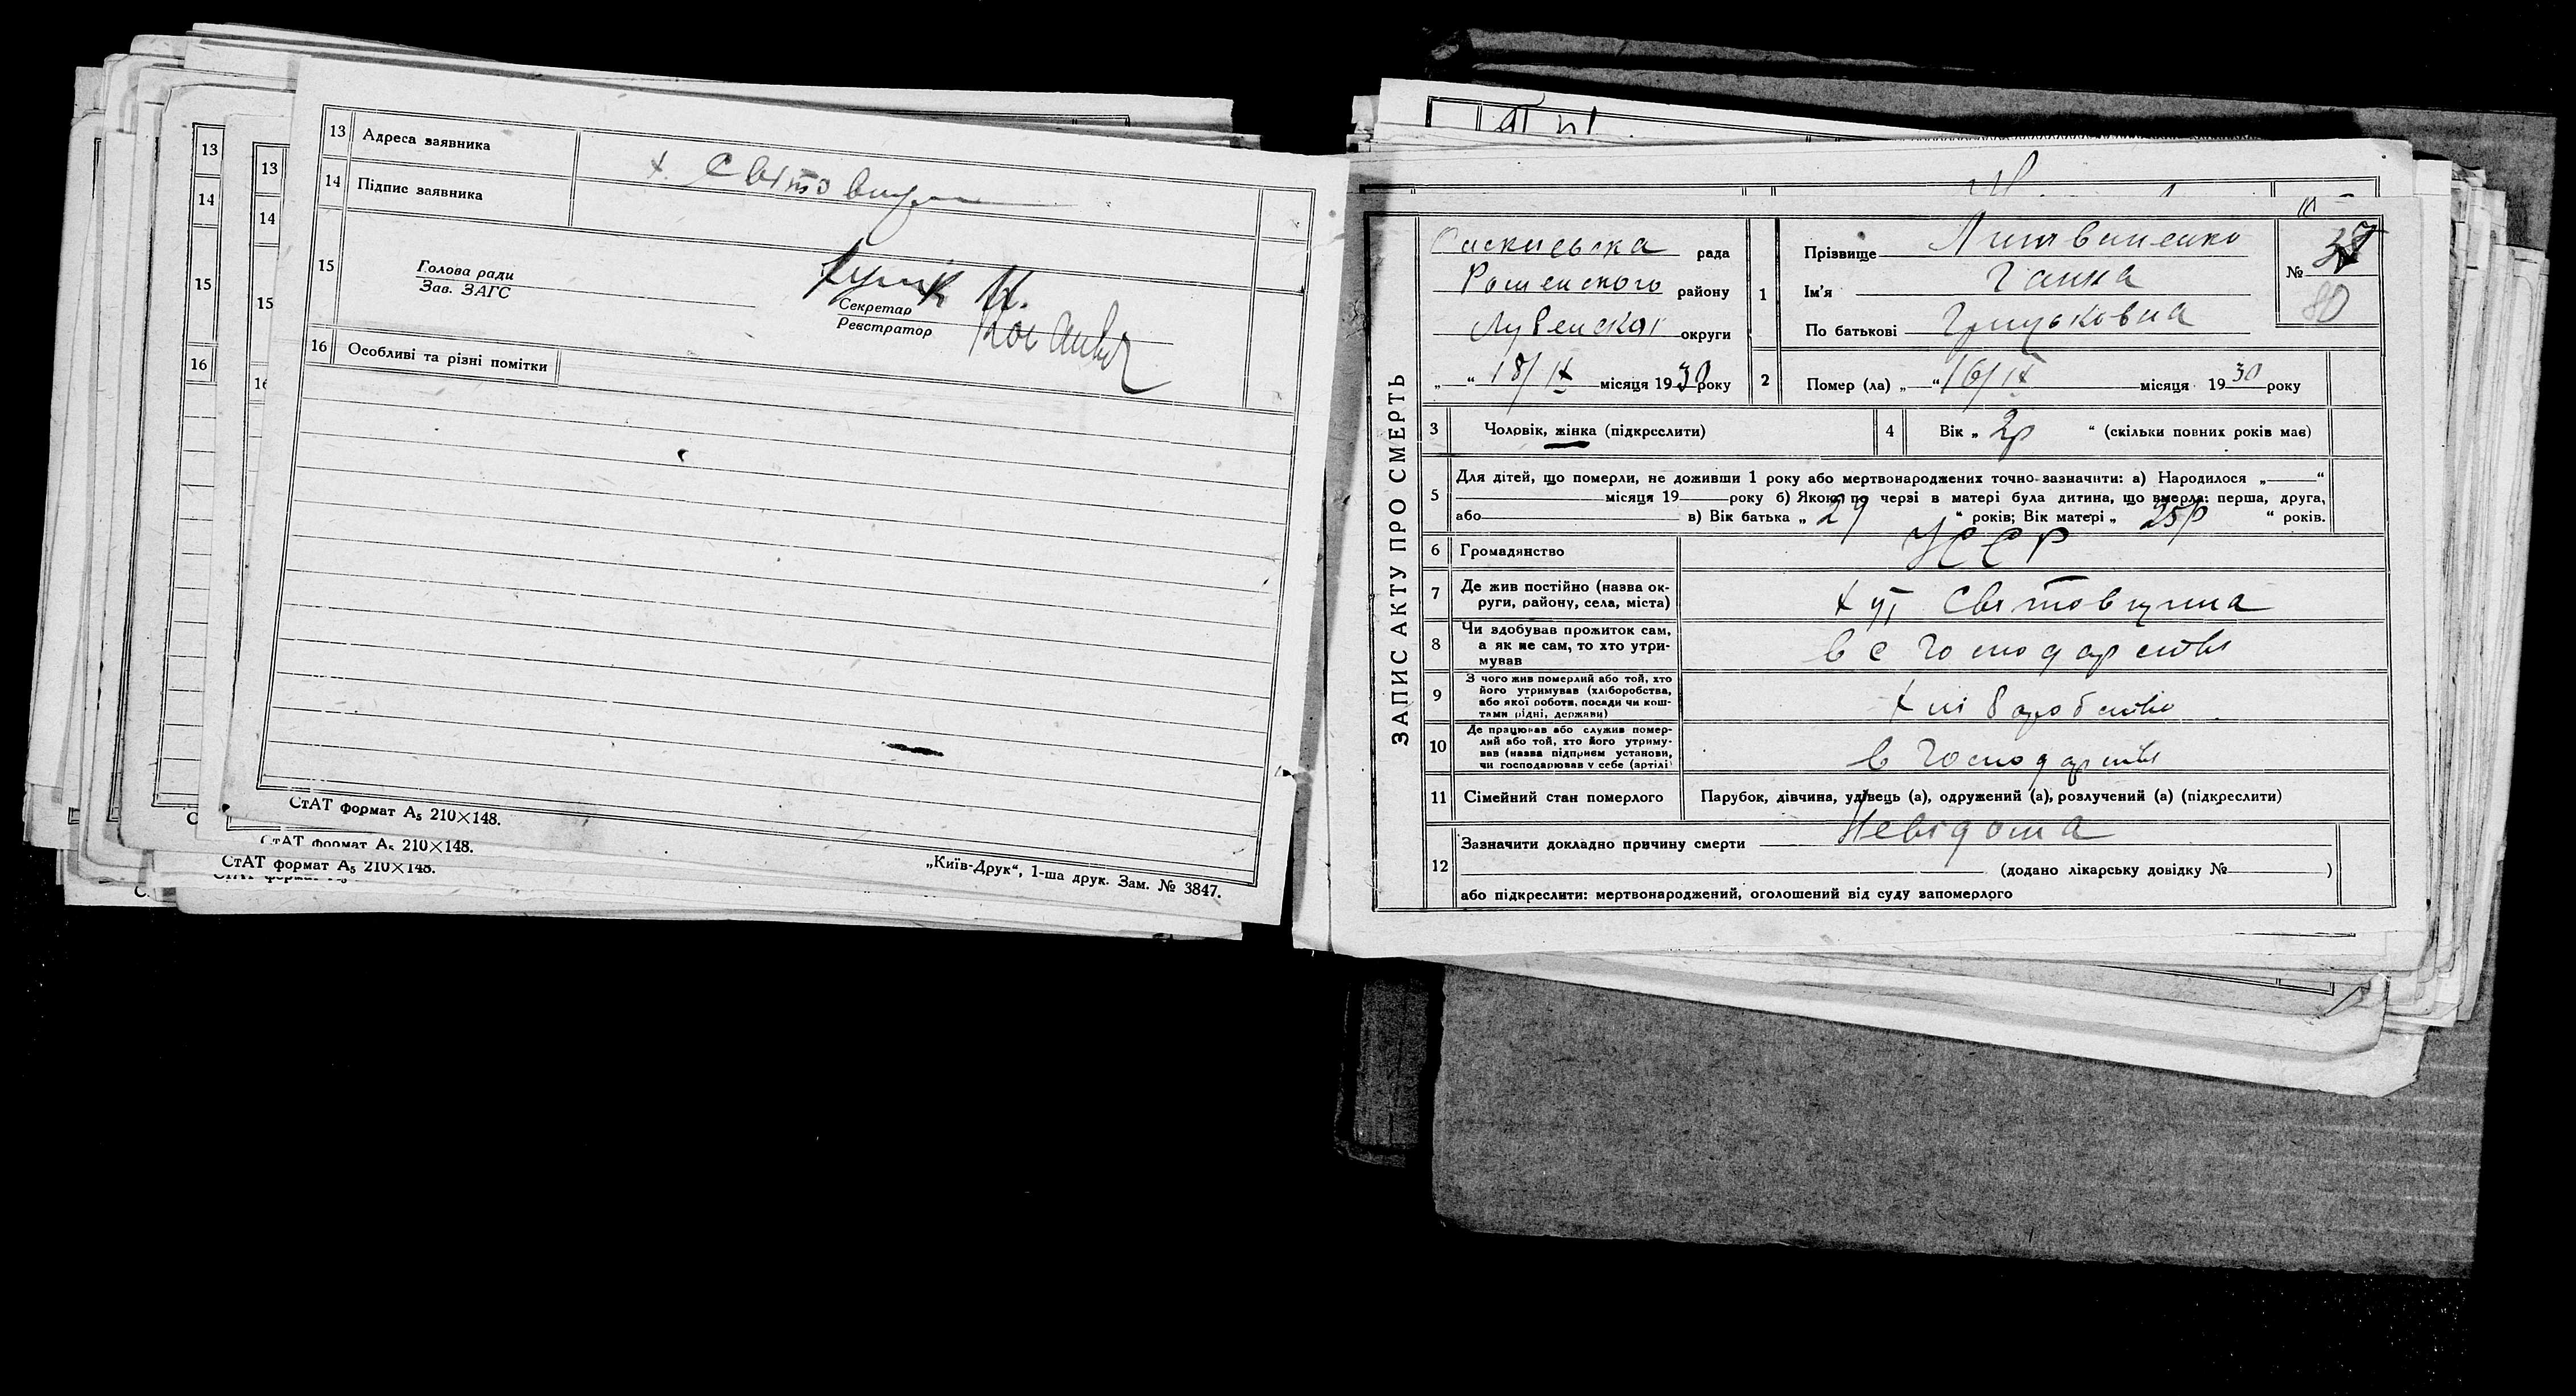 13 Адреса заявника х. Святовщ
14 Підпис заявника
15 Голова ради
Зав. ЗАГС
Секретар
Реєстратор
16 Особливі та різні помітки
СтАТ формат А₅ 210×148.
„Київ-Друк“, 1-ша друк. Зам. № 3847.
13
14
15
16
13
14
15
СтАТ формат А₅ 210×148.
СтАТ формат А₅ 210×148.
ЗАПИС АКТУ ПРО СМЕРТЬ
рада
району
Лубенскої округи
„ “ 18/ІХ місяця 1930 року
1 Прізвище Литвиненко
Ім'я Ганна
По батькові Грицьковна
№ 37
80
2 Помер (ла) „ “ 16/ІХ місяця 1930 року
3 Чоловік, жінка (підкреслити)
4 Вік „ 2р “ (скільки повних років має)
5 Для дітей, що померли, не доживши 1 року або мертвонароджених точно зазначити: а) Народилося „ “
місяця 19 року б) Якою по черзі в матері була дитина, що вмерла: перша, друга,
або в) Вік батька „ 29 “ років; Вік матері „ 25р “ років.
6 Громадянство УССР
7 Де жив постійно (назва ок-
руги, району, села, міста) Святовщина
8 Чи здобував прожиток сам,
а як не сам, то хто утри-
мував в с господарстві
9 З чого жив померлий або той, хто
його утримував (хліборобства,
або якої роботи, посади чи кош-
тами рідні, держави) хліборобство
10 Де працював або служив помер-
лий або той, хто його утриму-
вав (назва підприєм установи,
чи господарював у себе (артілі) в господарстві
11 Сімейний стан померлого Парубок, дівчина, удівець (а), одружений (а), розлучений (а) (підкреслити)
12 Зазначити докладно причину смерти Невідома
(додано лікарську довідку № )
або підкреслити: мертвонароджений, оголошений від суду запомерлого